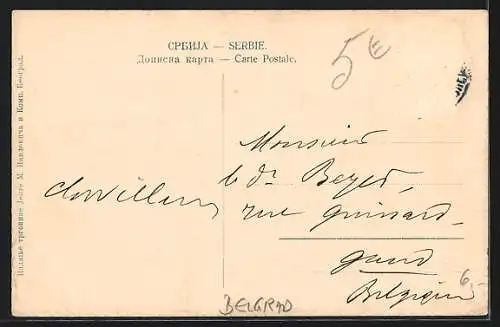 СРБИЈА — SERBIE.
Дописна карта — Carte Postale.
5 €
Monsieur
le dr Beyer,
rue guinard
gand
Belgique
6.-
BELGRAD
Издање трговине Јеоте М. Павловића и Комп. Београд.